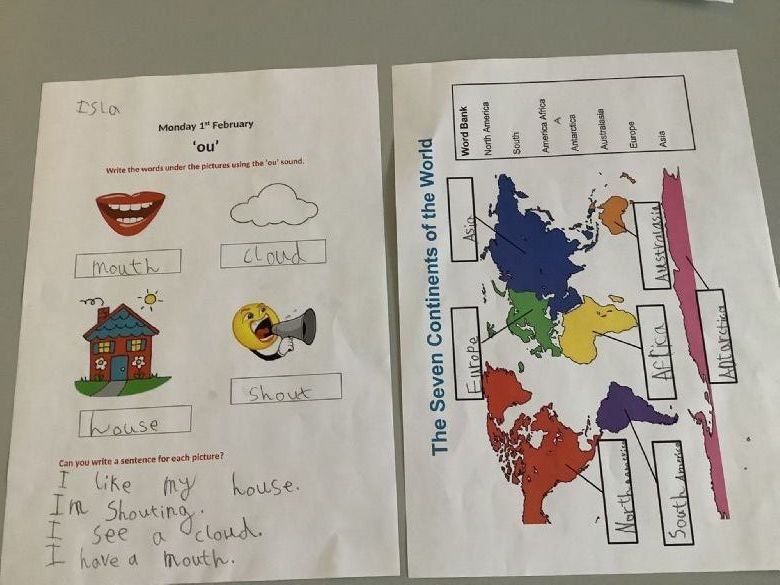 Isla
Monday 1st February
'ou'
Write the words under the pictures using the 'ou' sound.
mouth
cloud
house
shout
Can you write a sentence for each picture?
I like my house.
Im Shouting.
I see a cloud.
I have a mouth.
The Seven Continents of the World
Word Bank
North America
South
America Africa
A
Antarctica
Australasia
Europe
Asia
Asia
Australasia
Europe
Africa
Antarctica
North america
South America